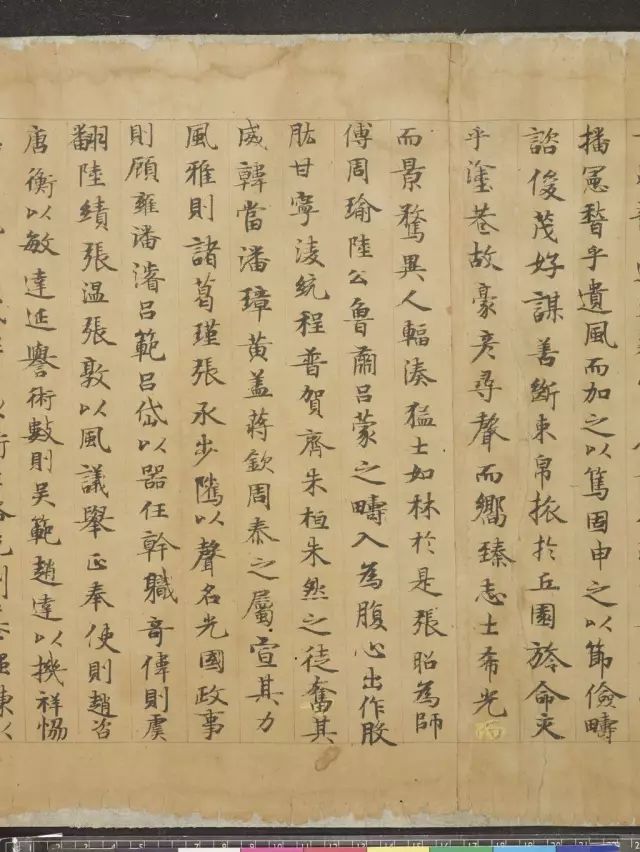 播憲稽乎遺風而加之以篤固申之以節儉疇
諮俊茂好謀善斷束帛旅於丘園旌命交
乎塗巷故豪彦尋聲而嚮臻志士希光而
而景騖異人輻湊猛士如林於是張昭為師
傅周瑜陸公魯肅吕蒙之疇入為腹心出作股
肱甘寧淩統程普賀齊朱桓朱然之徒奮其
威韓當潘璋黄盖蒋欽周泰之屬宣其力
風雅則諸葛瑾張承步隲以聲名光國政事
則顧雍潘濬吕範吕岱以器任幹職奇偉則虞
翻陸績張温張敦以風議舉正奉使則趙咨
唐衡以敏達延譽術數則吳範趙達以機祥恊